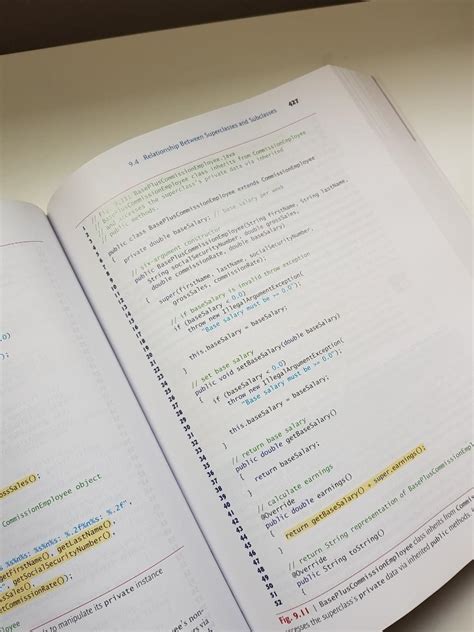 0)
);
ossSales();
CommissionEmployee object
%s: %s%n%s: %.2f%n%s: %.2f",
getFirstName(), getLastName(),
getSocialSecurityNumber(),
es(),
CommissionRate());
ployee's non-
to manipulate its private instance
via
9.4 Relationship Between Superclasses and Subclasses 421
1 // Fig. 9.11: BasePlusCommissionEmployee.java
2 // BasePlusCommissionEmployee class inherits from CommissionEmployee
3 // and accesses the superclass's private data via inherited
4 // public methods.
5
6 public class BasePlusCommissionEmployee extends CommissionEmployee
7 {
8 private double baseSalary; // base salary per week
9
10 // six-argument constructor
11 public BasePlusCommissionEmployee(String firstName, String lastName,
12 String socialSecurityNumber, double grossSales,
13 double commissionRate, double baseSalary)
14 {
15 super(firstName, lastName, socialSecurityNumber,
16 grossSales, commissionRate);
17
18 // if baseSalary is invalid throw exception
19 if (baseSalary < 0.0)
20 throw new IllegalArgumentException(
21 "Base salary must be >= 0.0");
22
23 this.baseSalary = baseSalary;
24 }
25
26 // set base salary
27 public void setBaseSalary(double baseSalary)
28 {
29 if (baseSalary < 0.0)
30 throw new IllegalArgumentException(
31 "Base salary must be >= 0.0");
32
33 this.baseSalary = baseSalary;
34 }
35
36 // return base salary
37 public double getBaseSalary()
38 {
39 return baseSalary;
40 }
41
42 // calculate earnings
43 @Override
44 public double earnings()
45 {
46 return getBaseSalary() + super.earnings();
47 }
48
49 // return String representation of BasePlusCommissionEmpl
50 @Override
51 public String toString()
52
Fig. 9.11 | BasePlusCommissionEmployee class inherits from Com
cesses the superclass's private data via inherited public methods.